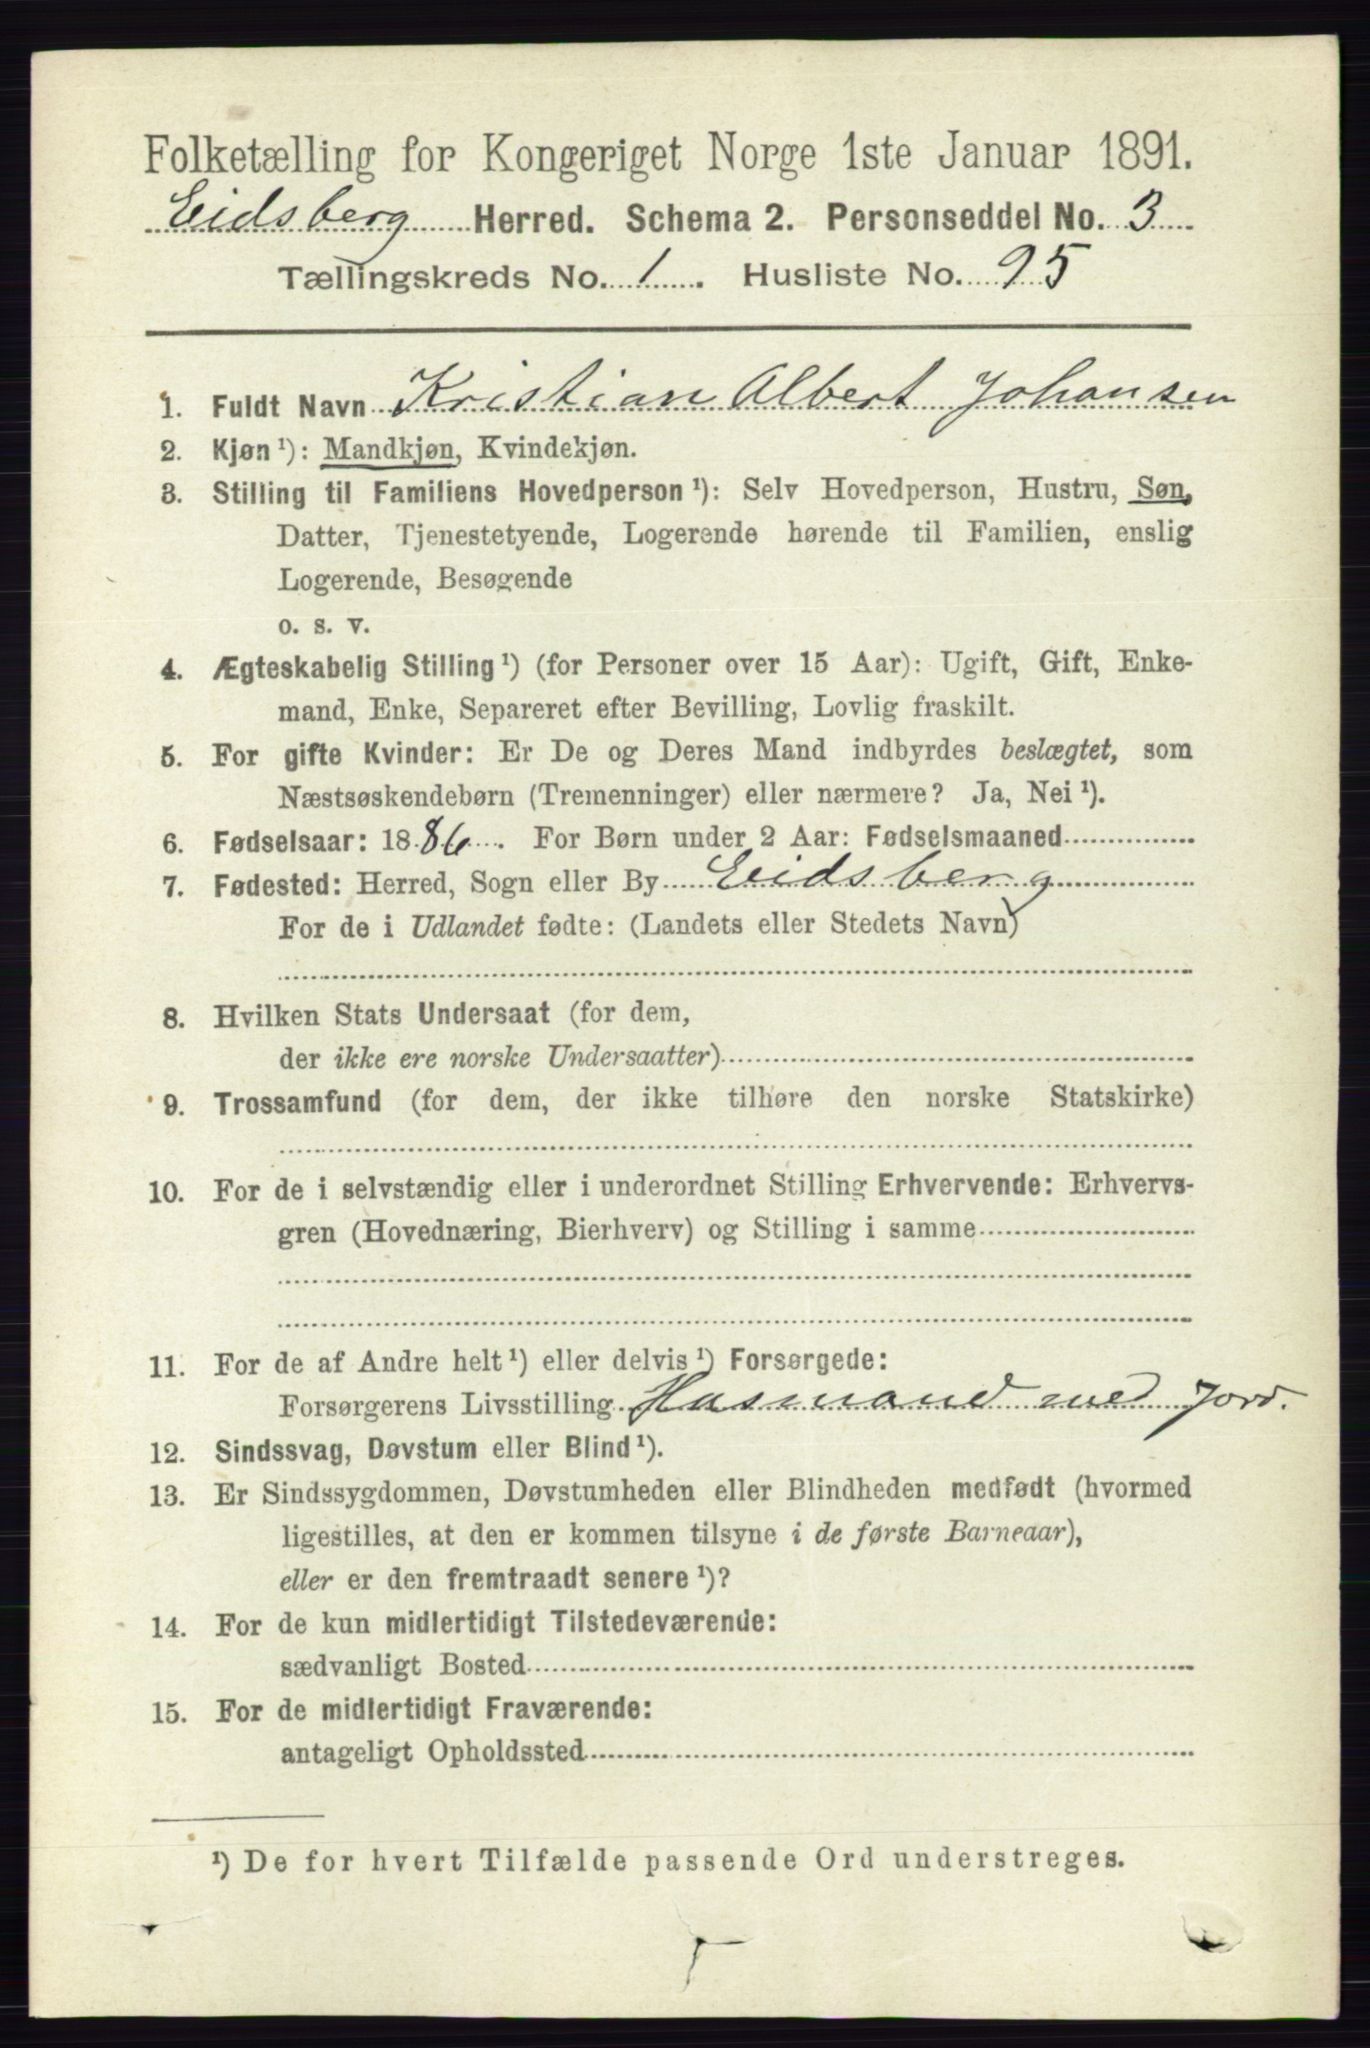 Folketælling for Kongeriget Norge 1ste Januar 1891.
Eidsberg Herred. Schema 2. Personseddel No. 3
Tællingskreds No. 1. Husliste No. 95
1. Fuldt Navn Kristian Albert Johansen
2. Kjøn ¹): Mandkjøn, Kvindekjøn.
3. Stilling til Familiens Hovedperson ¹): Selv Hovedperson, Hustru, Søn,
Datter, Tjenestetyende, Logerende hørende til Familien, enslig
Logerende, Besøgende
o. s. v.
4. Ægteskabelig Stilling ¹) (for Personer over 15 Aar): Ugift, Gift, Enke-
mand, Enke, Separeret efter Bevilling, Lovlig fraskilt.
5. For gifte Kvinder: Er De og Deres Mand indbyrdes beslægtet, som
Næstsøskendebørn (Tremenninger) eller nærmere? Ja, Nei ¹).
6. Fødselsaar: 1886. For Børn under 2 Aar: Fødselsmaaned
7. Fødested: Herred, Sogn eller By Eidsberg
For de i Udlandet fødte: (Landets eller Stedets Navn)
8. Hvilken Stats Undersaat (for dem,
der ikke ere norske Undersaatter)
9. Trossamfund (for dem, der ikke tilhøre den norske Statskirke)
10. For de i selvstændig eller i underordnet Stilling Erhvervende: Erhvervs-
gren (Hovednæring, Bierhverv) og Stilling i samme
11. For de af Andre helt ¹) eller delvis ¹) Forsørgede:
Forsørgerens Livsstilling Husmand med Jord.
12. Sindssvag, Døvstum eller Blind ¹).
13. Er Sindssygdommen, Døvstumheden eller Blindheden medfødt (hvormed
ligestilles, at den er kommen tilsyne i de første Barneaar),
eller er den fremtraadt senere ¹)?
14. For de kun midlertidigt Tilstedeværende:
sædvanligt Bosted
15. For de midlertidigt Fraværende:
antageligt Opholdssted
¹) De for hvert Tilfælde passende Ord understreges.